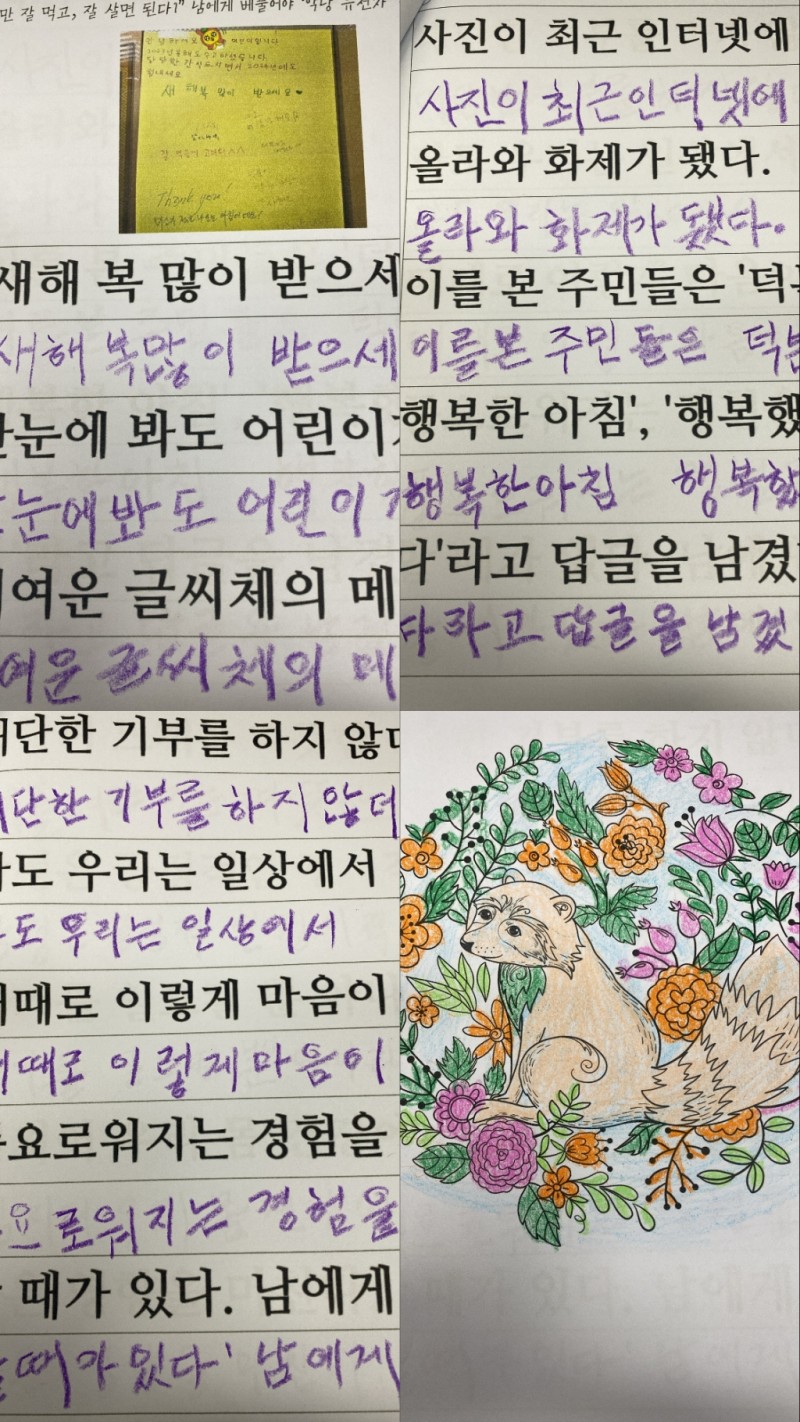 만 잘 먹고, 잘 살면 된다?" 남에게 베풀어야
새해 복 많이 받으세요♥
Thank you!
새해 복 많이 받으세
새해 복많이 받으세
눈에 봐도 어린이
눈에봐도 어린이
여운 글씨체의 메
여운 글씨체의 메
사진이 최근 인터넷에
사진이 최근인터넷에
올라와 화제가 됐다.
올라와 화제가 됐다.
이를 본 주민들은 '덕분
이를본 주민들은 턱분
행복한 아침', '행복했
행복한아침 행복했
다'라고 답글을 남겼
다라고 답글을 남겼
단한 기부를 하지 않더
단한 기부를 하지 않더
도 우리는 일상에서
도 우리는 일상에서
때로 이렇게 마음이
때로 이렇게마음이
요로워지는 경험을
요로워지는 경험을
때가 있다. 남에게
때가 있다' 남에게